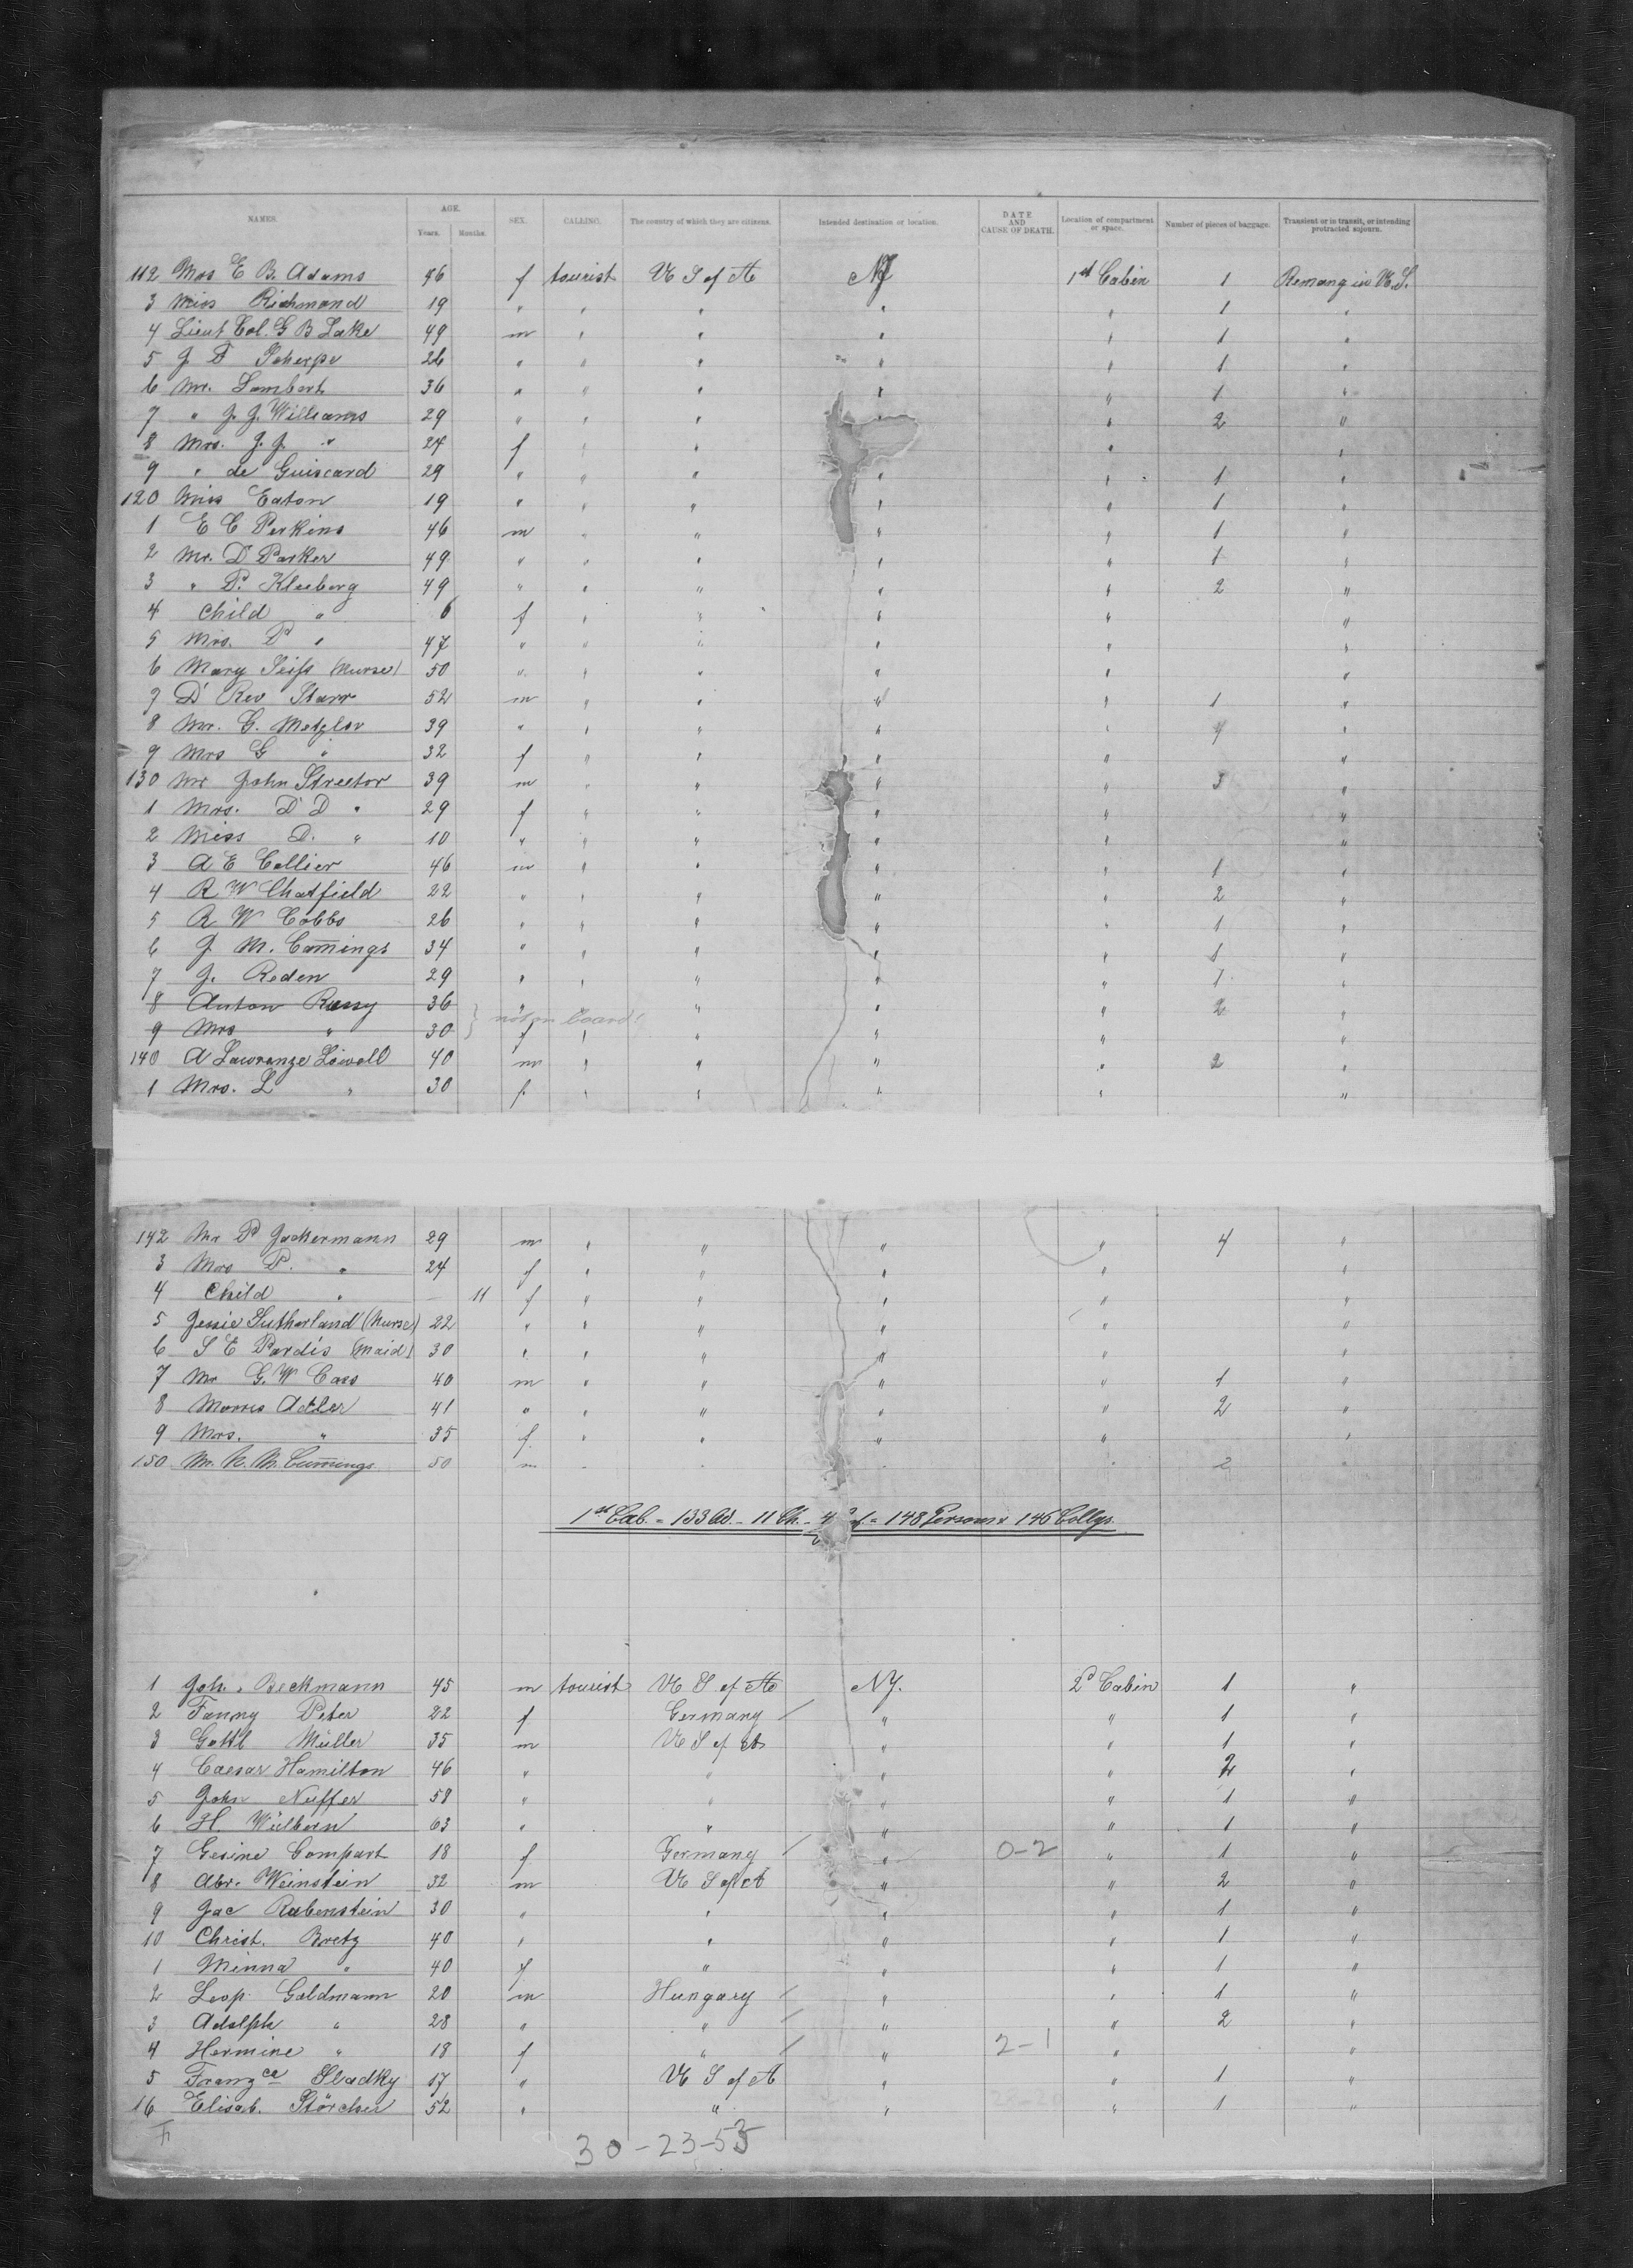 NAMES. AGE. Years. Months. SEX. CALLING. The country of which they are citizens. Intended destination or location. DATE AND CAUSE OF DEATH. Location of compartment or space. Number of pieces of baggage. Transient or in transit, or intending protracted sojourn.
112 Mrs E B. Adams 46 f tourist U S of A NY 1st Cabin 1 Remang in U.S.
3 Miss Richmond 19 " " " " " 1 "
4 Lieut Col. G B Lake 49 m " " " " 1 "
5 J F Scherpe 26 " " " " " 1 "
6 Mr. Lambert 36 " " " " " 1 "
7 " J. J. Williams 29 " " " " " 2 "
8 Mrs. J. J. " 24 f " " " " "
9 " de Guiscard 29 " " " " " 1 "
120 Miss Eaton 19 " " " " " 1 "
1 E C Perkins 46 m " " " " 1 "
2 Mr. D Parker 49 " " " " " 1 "
3 " P. Kleeberg 49 " " " " " 2 "
4 Child " 6 f " " " " "
5 Mrs. P " 47 " " " " " "
6 Mary Seifs (Nurse) 50 " " " " " "
7 Dr Rev Starr 52 m " " " " 1 "
8 Mr. G. Metzler 39 " " " " " 4 "
9 Mrs G " 32 f " " " " "
130 Mr John Streetor 39 m " " " " 3 "
1 Mrs. D D " 29 f " " " " "
2 Miss D. " 10 " " " " " "
3 A E Collier 46 m " " " " 1 "
4 R W Chatfield 22 " " " " " 2 "
5 R W Cobbs 26 " " " " " 1 "
6 J M. Cummings 34 " " " " " 1 "
7 J. Roden 29 " " " " " 1 "
8 Anton Rassy 36 " " " " 2 "
not on board!
9 Mrs " 30 f " " " " "
140 A Lawrange Lowell 40 m " " " " 2 "
1 Mrs. L " 30 f. " " " " "
142 Mr P Jackermann 29 m " " " " 4 "
3 Mrs P. " 24 f " " " " "
4 Child " — 11 f " " " " "
5 Jessie Sutherland (Nurse) 22 " " " " " "
6 S E Pardis (Maid) 30 " " " " " "
7 Mr G. W Cass 40 m " " " " 1 "
8 Morris Adler 41 " " " " " 2 "
9 Mrs. " 35 f. " " " " "
150 Mr. N. M. Cummings 50 m " " " " 2 "
1st Cab. = 133 Ad. - 11 Ch. - 4 = 148 Persons & 146 Collys
1 Joh. Beckmann 45 m tourist U S of A NY. 2d Cabin 1 "
2 Fanny Peter 22 f Germany " " 1 "
3 Gottl Müller 35 m U S of A " " 1 "
4 Caesar Hamilton 46 " " " " 2 "
5 John Neffer 58 " " " " 1 "
6 H. Wülbern 63 " " " " 1 "
7 Gesine Compart 18 f Germany " 0-2 " 1 "
8 Abr. Weinstein 32 m U S of A " " 2 "
9 Jac Rubenstein 30 " " " " 1 "
10 Christ. Bretz 40 " " " " 1 "
1 Minna " 40 f " " " 1 "
2 Leop. Goldmann 20 m Hungary " " 1 "
3 Adolph " 28 " " " " 2 "
4 Hermine " 18 f " " 2-1 " "
5 Franzca Sladky 17 " U S of A " " 1 "
16 Elisab. Störcker 52 " " " " 1 "
30-23-53